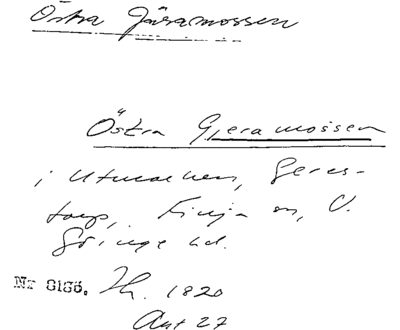 Östra Järamossen
Östra Gjeramossen
i utmarken, Geras-
torp, Finja sn, V.
Göinge hd.
Nr 8186. Jh. 1820
Akt 27